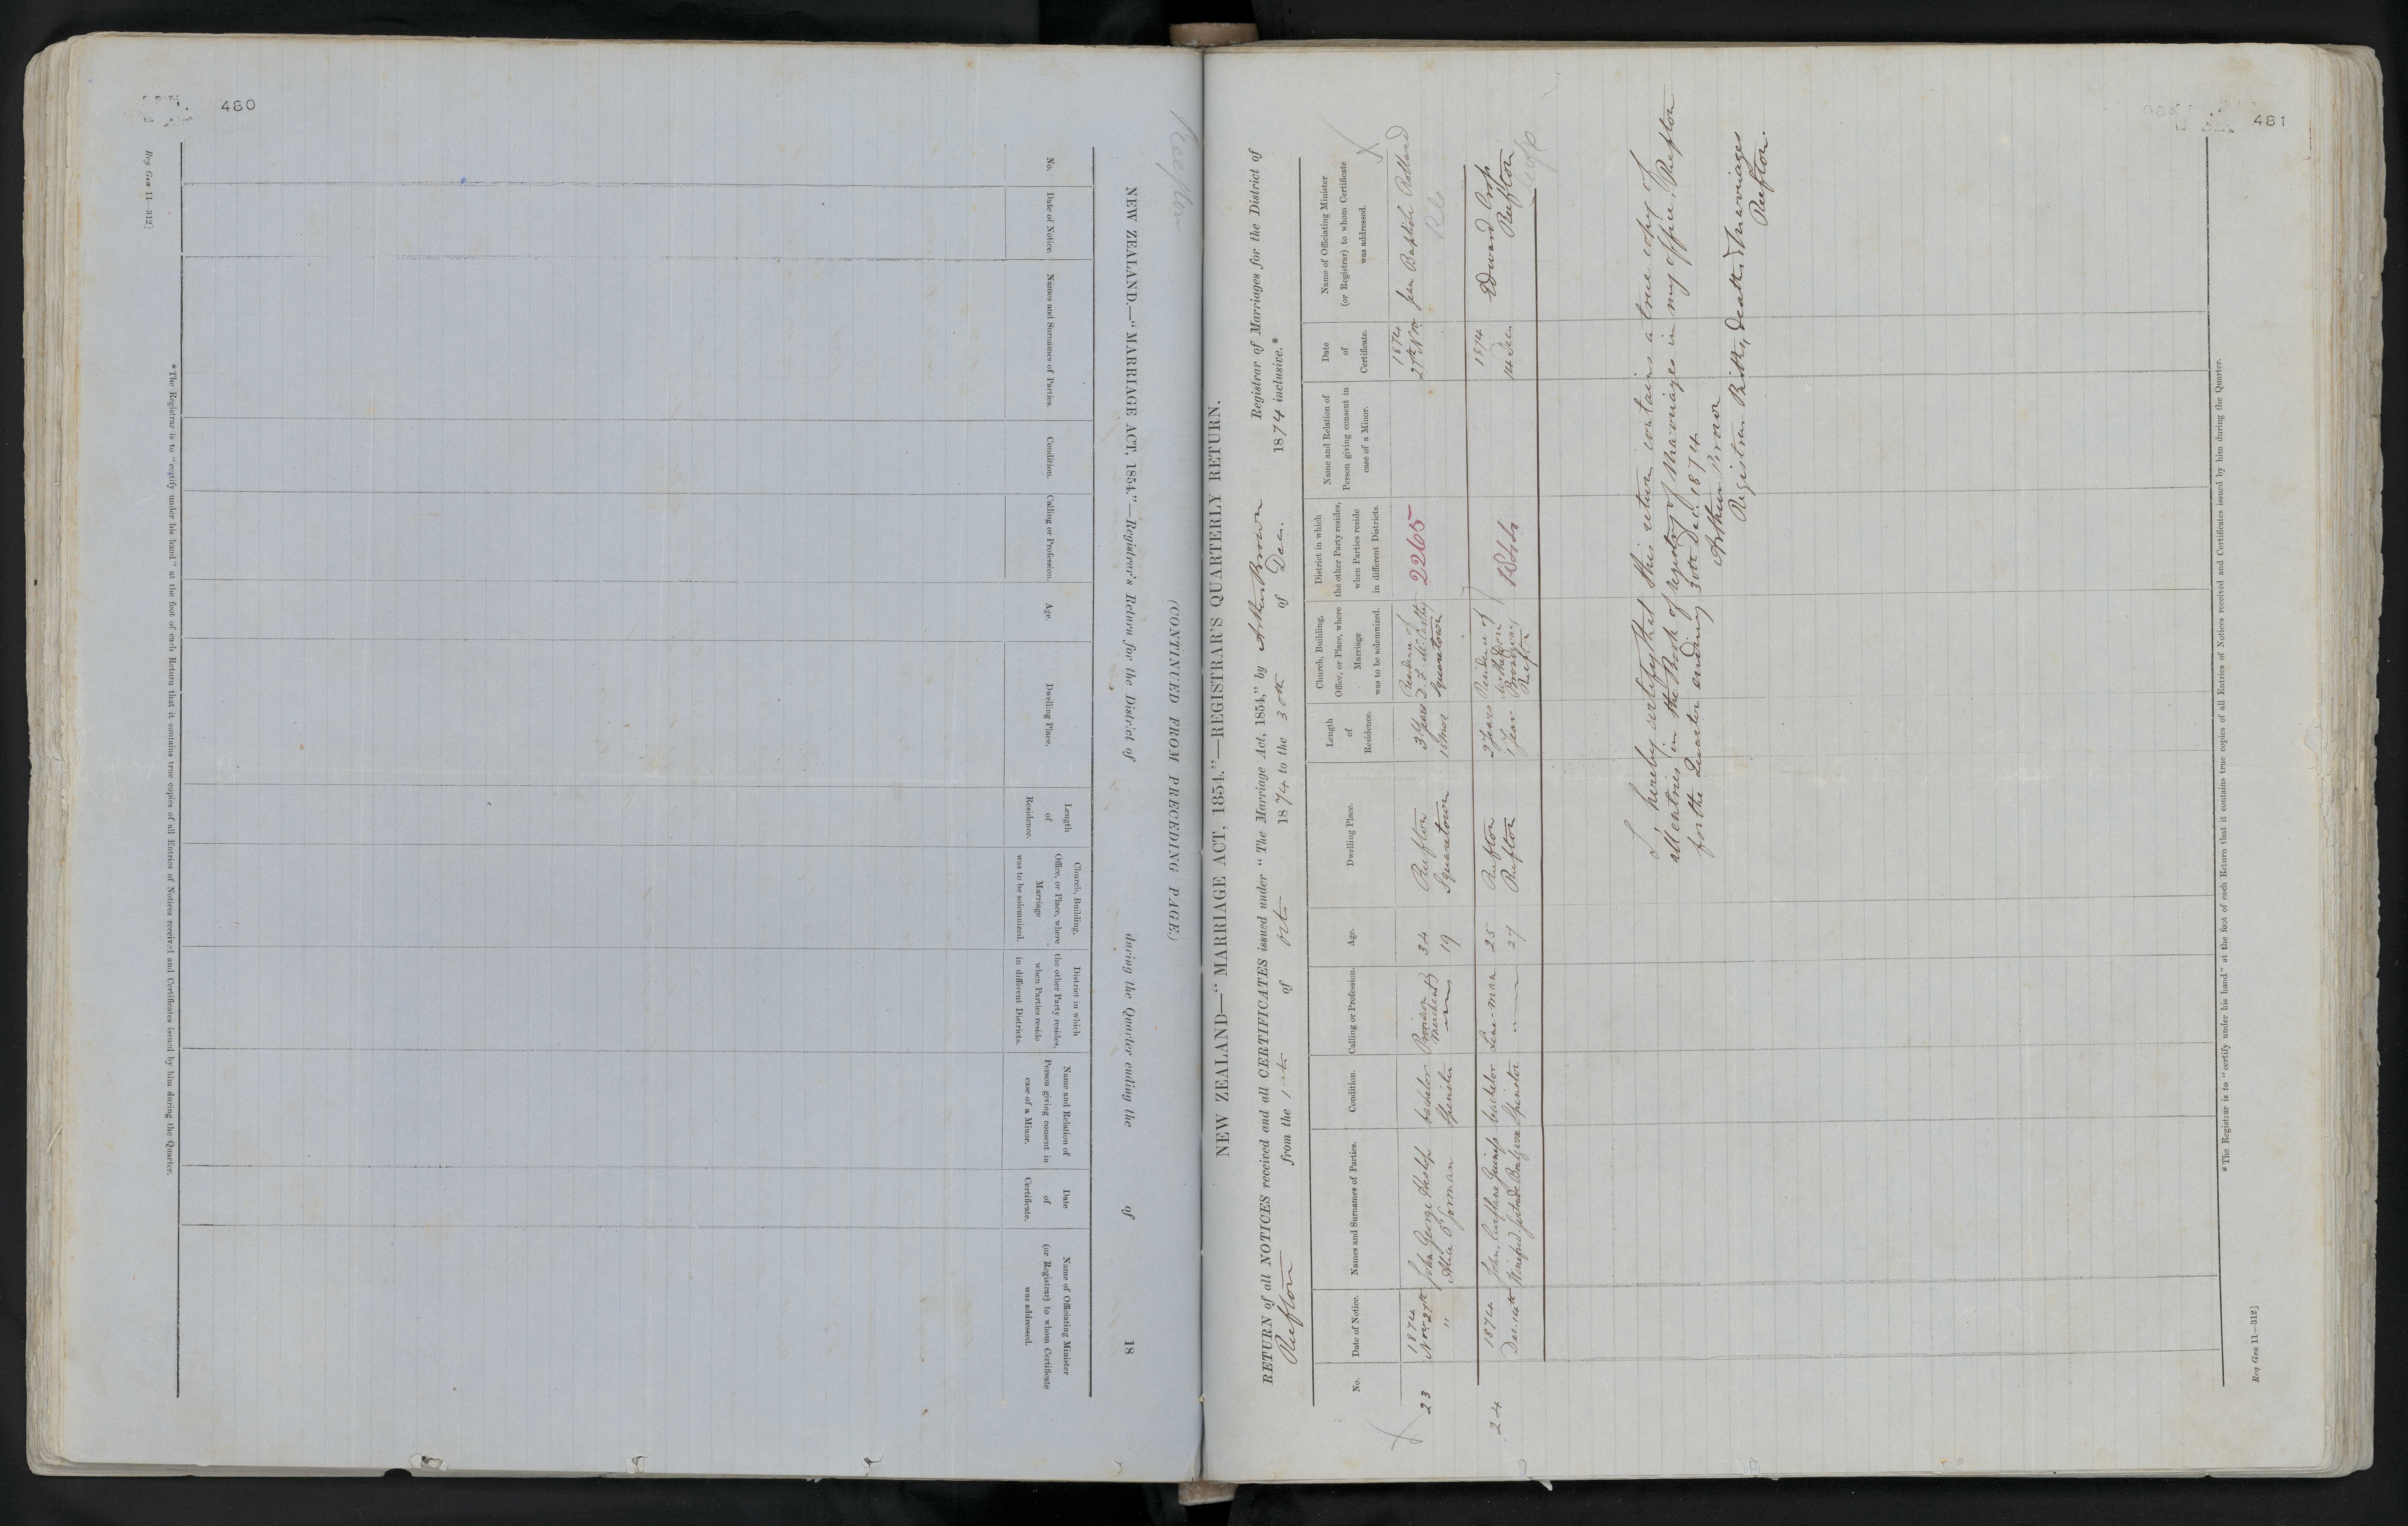 480
Reefton
(CONTINUED FROM PRECEDING PAGE.)
NEW ZEALAND.—"MARRIAGE ACT, 1854."—Registrar's Return for the District of during the Quarter ending the of 18
No.
Date of Notice.
Names and Surnames of Parties.
Condition.
Calling or Profession.
Age.
Dwelling Place.
Length
of
Residence.
Church, Building,
Office, or Place, where
Marriage
was to be solemnized.
District in which
the other Party resides,
when Parties reside
in different Districts.
Name and Relation of
Person giving consent in
case of a Minor.
Date
of
Certificate.
Name of Officiating Minister
(or Registrar) to whom Certificate
was addressed.
* The Registrar is to "certify under his hand" at the foot of each Return that it contains true copies of all Entries of Notices received and Certificates issued by him during the Quarter.
Reg Gen 11—312]
481
NEW ZEALAND—"MARRIAGE ACT, 1854."—REGISTRAR'S QUARTERLY RETURN.
RETURN of all NOTICES received and all CERTIFICATES issued under "The Marriage Act, 1854," by Arthur Brown Registrar of Marriages for the District of
Reefton from the 1st of Oct. 1874 to the 30th of Decr. 1874 inclusive.*
No.
Date of Notice.
Names and Surnames of Parties.
Condition.
Calling or Profession.
Age.
Dwelling Place.
Length
of
Residence.
Church, Building,
Office, or Place, where
Marriage
was to be solemnized.
District in which
the other Party resides,
when Parties reside
in different Districts.
Name and Relation of
Person giving consent in
case of a Minor.
Date
of
Certificate.
Name of Officiating Minister
(or Registrar) to whom Certificate
was addressed.
23
1874
Nov 27th
"
John George Heslop
Alice O'Gorman
bachelor
Spinster
Provision
Merchant
34
19
Reefton
Squaretown
3½ years
18 mos
Residence of
D. F. McCarthy
Squaretown
2265
1874
27th Nov
Jean Baptiste Rolland
RC
24
1874
Dec. 14th
John Guinefs
Winifred Gertrude
bachelor
Spinster
25
27
Reefton
Reefton
2 years
1 year
Residence of
Broadway
Reefton
1874
14 Decr.
Edward Crofs
Reefton
I hereby certify that this return contains a true copy of
all entries in the Book of registry of Marriages in my office, Reefton
for the Quarter ending 30th Dec. 1874
Arthur Brown
Registrar Births, deaths & Marriages
Reefton.
* The Registrar is to "certify under his hand" at the foot of each Return that it contains true copies of all Entries of Notices received and Certificates issued by him during the Quarter.
Reg Gen 11—312]